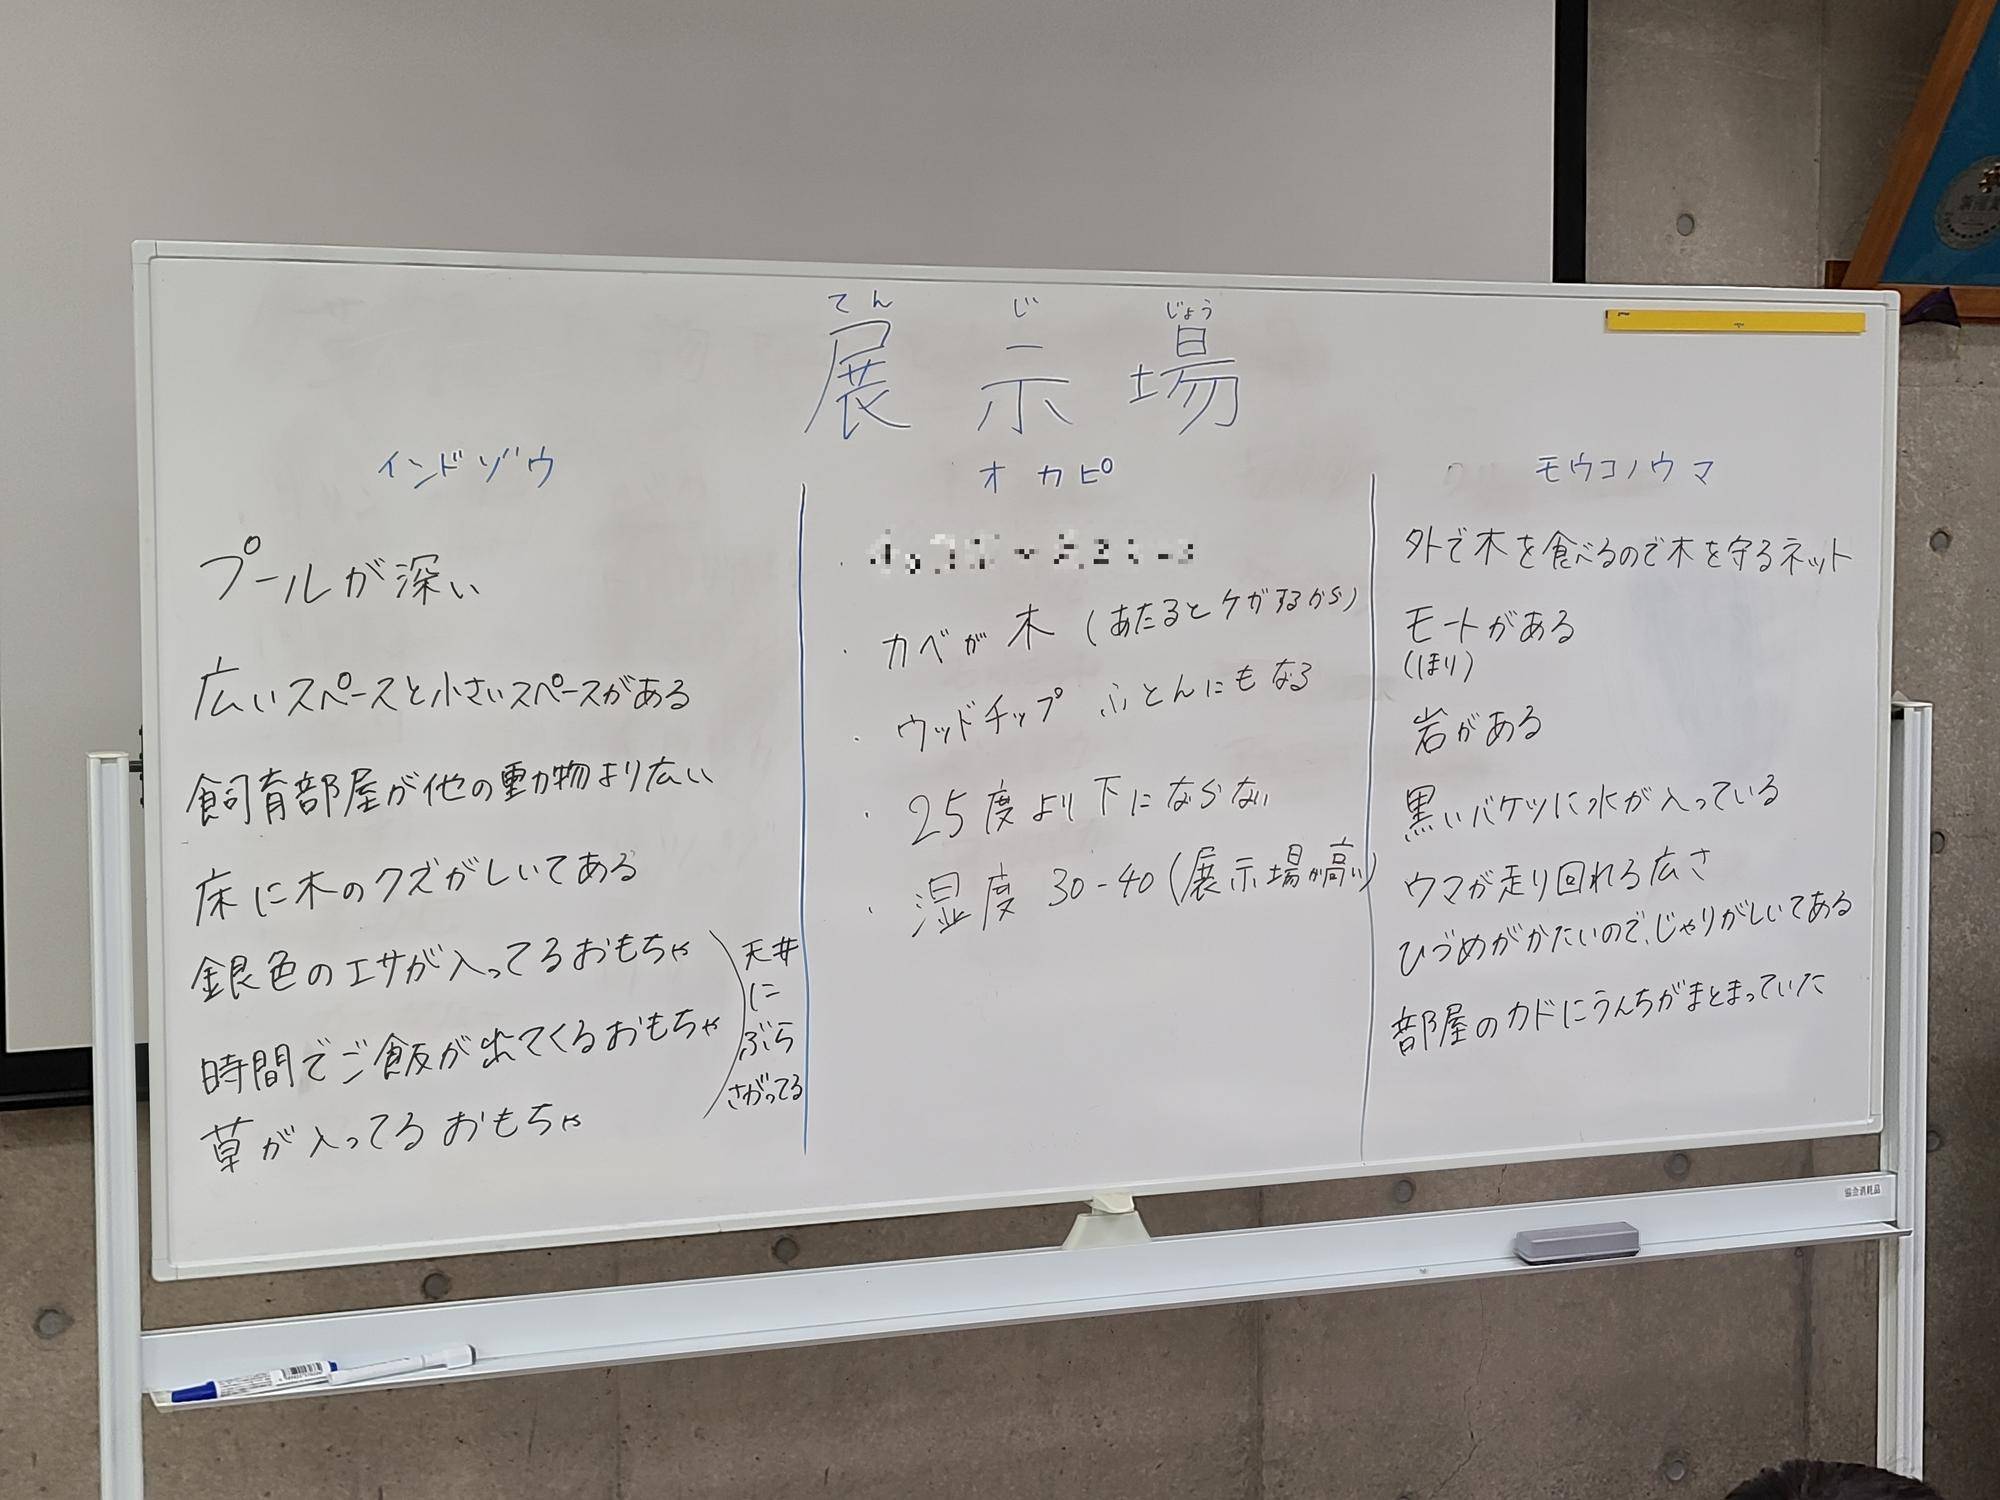 てん じ じょう
展示場
インドゾウ
プールが深い
広いスペースと小さいスペースがある
飼育部屋が他の動物より広い
床に木のクズがしいてある
銀色のエサが入ってるおもちゃ
時間でご飯が出てくるおもちゃ
草が入ってるおもちゃ
天井
に
ぶら
さがってる
オカピ
・カベが木(あたるとケガするから)
・ウッドチップ ふとんにもなる
・25度より下にならない
・湿度 30-40(展示場が高い)
モウコノウマ
外で木を食べるので木を守るネット
モートがある
(ほり)
岩がある
黒いバケツに水が入っている
ウマが走り回れる広さ
ひづめがかたいので、じゃりがしいてある
部屋のカドにうんちがまとまっていた
協会消耗品